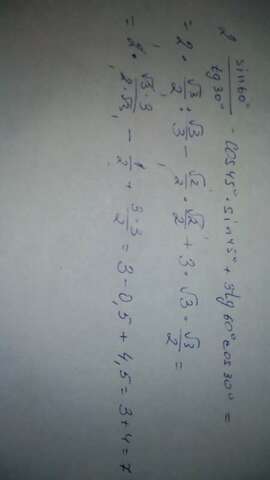 2 sin60°/tg30° - cos45°·sin45° + 3tg60°cos30° =
= 2 · √3/2 : √3/3 - √2/2 · √2/2 + 3 · √3 · √3/2 =
= 2 · √3·3/2·√3 - 1/2 + 3·3/2 = 3 - 0,5 + 4,5 = 3 + 4 = 7